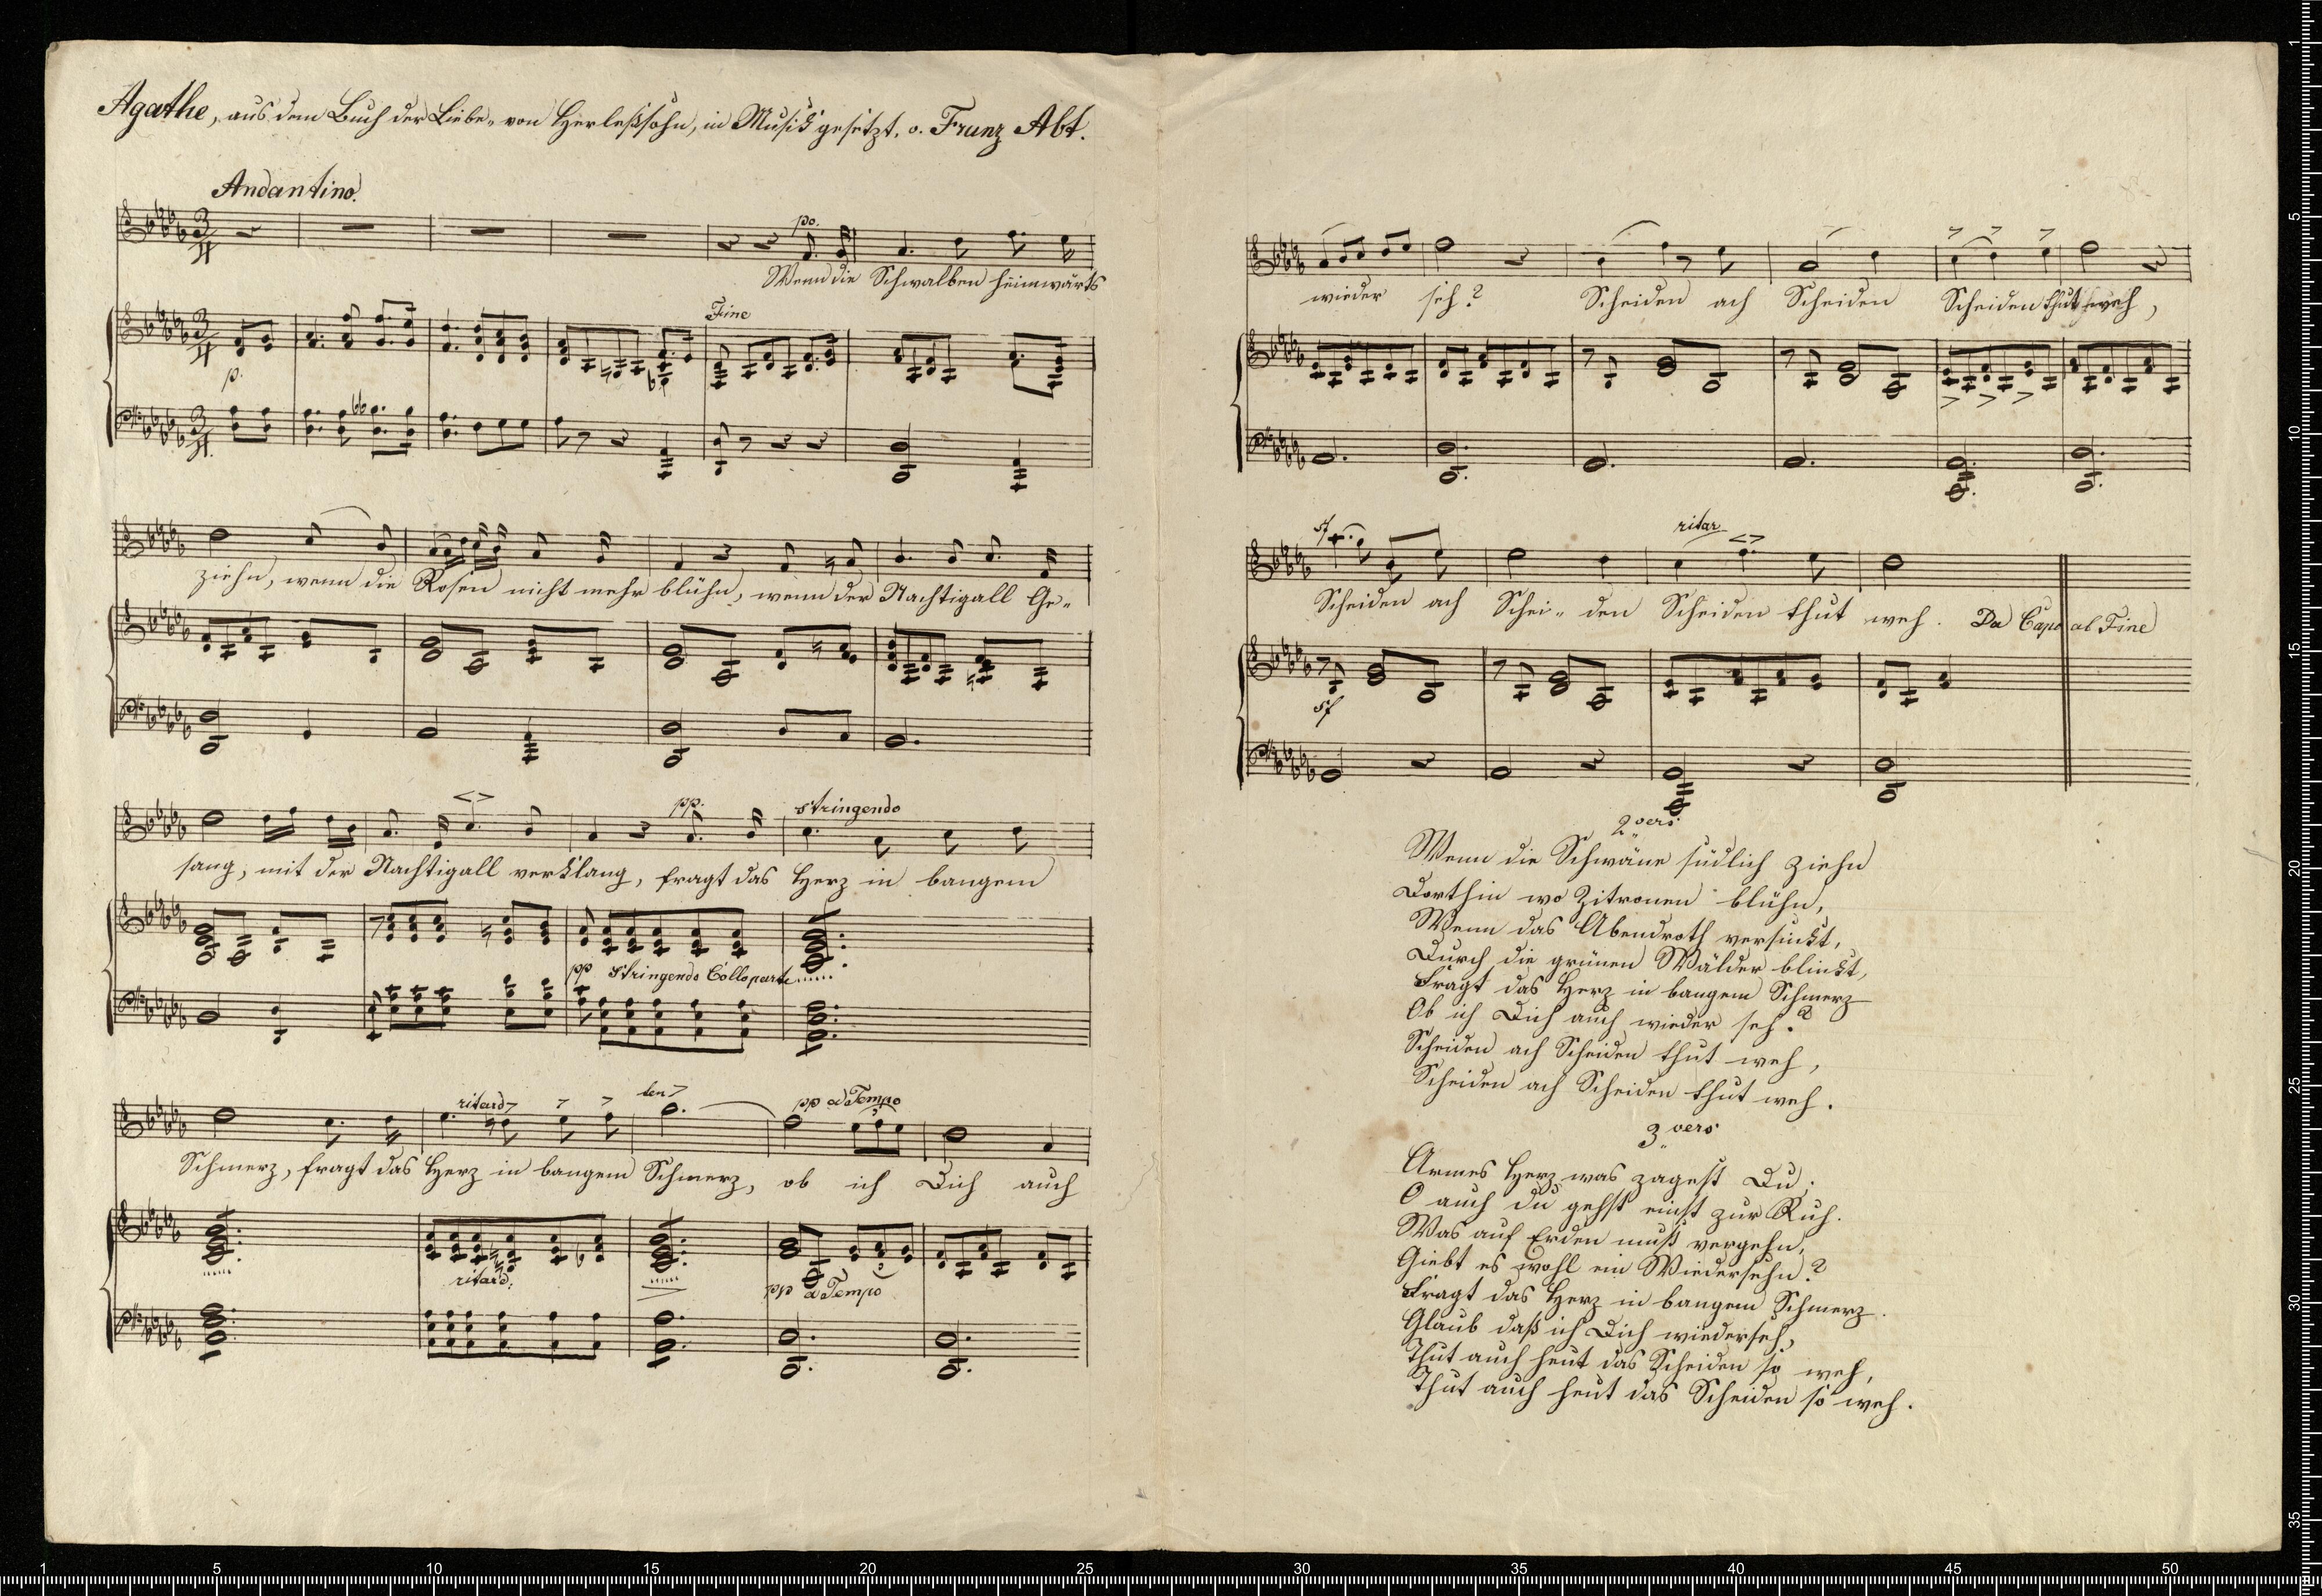 Agathe, aus dem Buch der Liebe, von Herleßsohn, in Musik gesetzt, v. Franz Abt.
Andantino.
po.
Wenn die Schwalben heimwärts
Fine
p.
ziehn, wenn die Rosen nicht mehr blühn, wenn der Nachtigall Ge-
pp. stringendo
sang, mit der Nachtigall verklang, fragt das Herz in bangem
pp stringendo Colloparte
ritard ten pp a Tempo
Schmerz, fragt das Herz in bangem Schmerz, ob ich Dich auch
ritard: pp a Tempo
wieder seh? Scheiden ach Scheiden Scheiden thut weh,
sf ritar
Scheiden ach Schei-den Scheiden thut weh. Da Capo al Fine
sf
2 vers
Wenn die Schwäne südlich ziehn
Dorthin wo Zitronen blühn,
Wenn das Abendroth versinkt,
Durch die grünen Wälder blinkt,
Fragt das Herz in bangem Schmerz
Ob ich Dich auch wieder seh?
Scheiden ach Scheiden thut weh,
Scheiden ach Scheiden thut weh.
3 vers
Armes Herz was zagest Du;
O auch du gehst einst zur Ruh.
Was auf Erden muß vergehn,
Giebt es wohl ein Wiedersehn?
Fragt das Herz in bangem Schmerz.
Glaub daß ich Dich wiederseh,
Thut auch heut das Scheiden so weh,
Thut auch heut das Scheiden so weh.
1 5 10 15 20 25 30 35 40 45 50
1
5
10
15
20
25
30
35